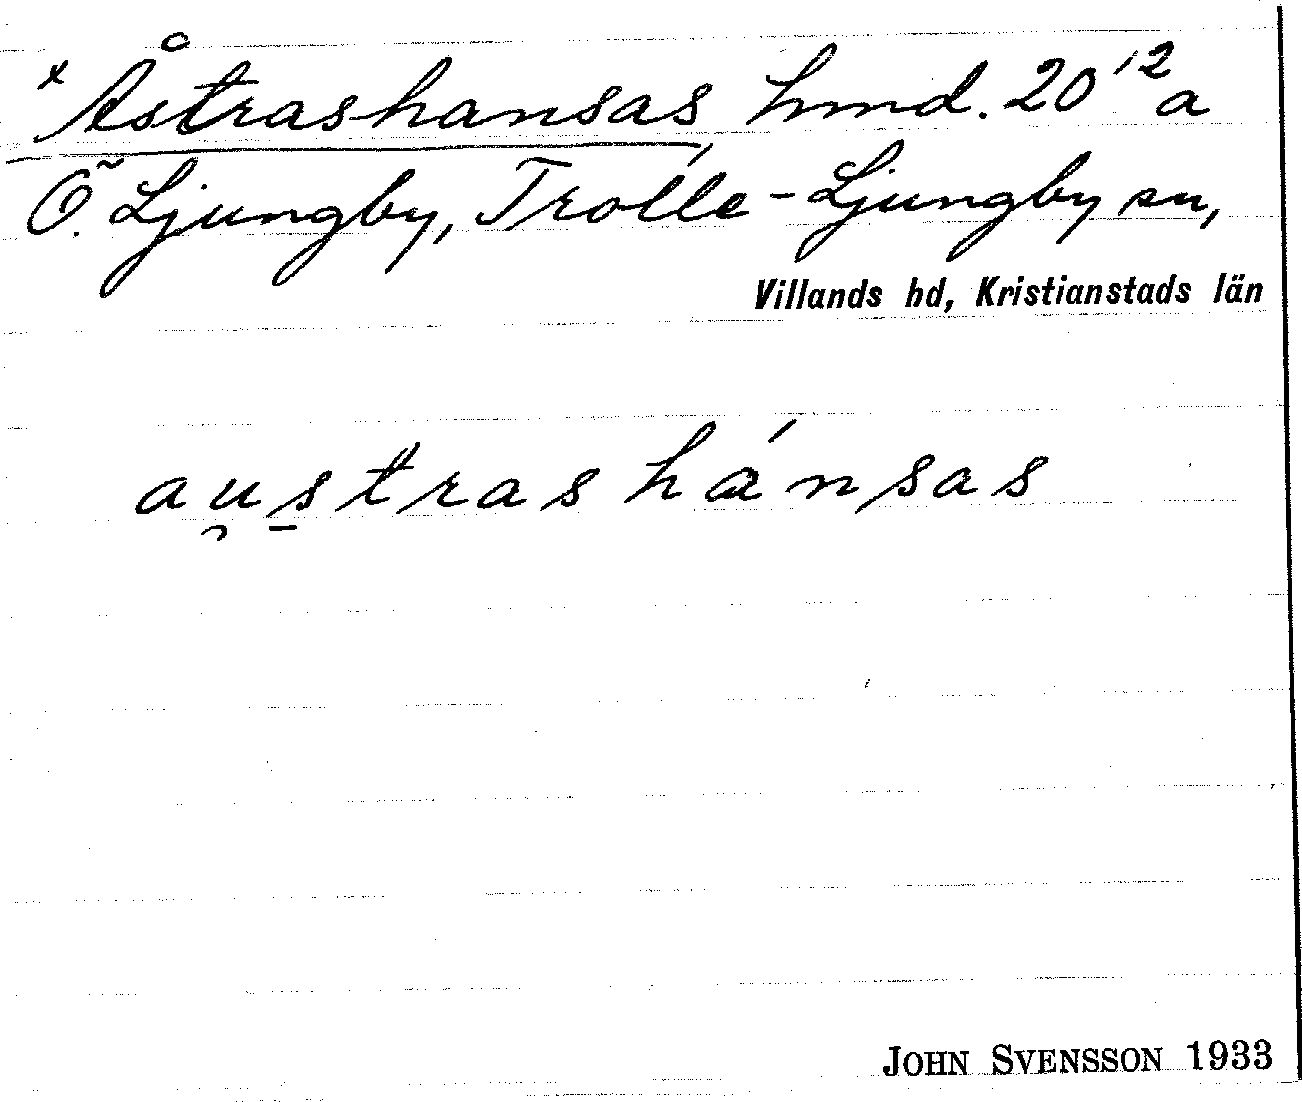 x Åstrashansas hmd. 20¹²a
Ö. Ljungby, Trolle-Ljungby sn,
Villands hd, Kristianstads län
au̯s̱trashánsas
JOHN SVENSSON 1933